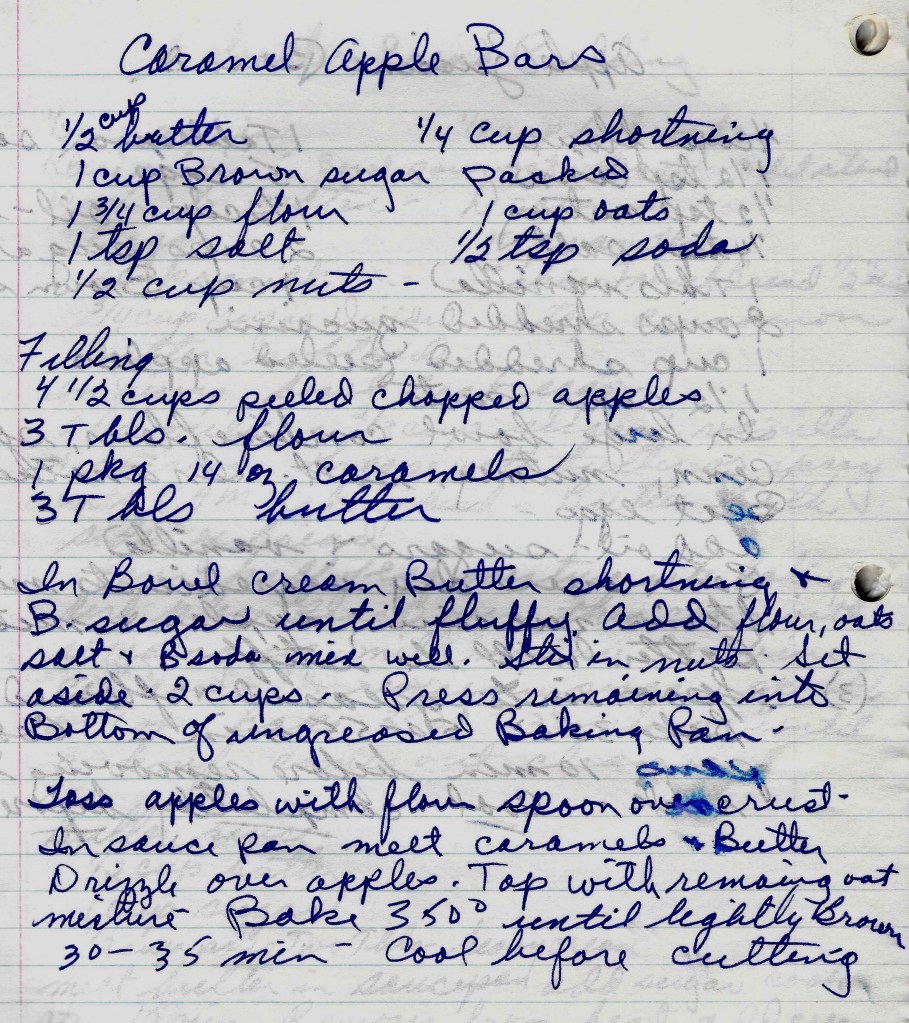 Caramel Apple Bars
1/2 cup butter 1/4 cup shortning
1 cup Brown sugar packed
1 3/4 cup flour 1 cup oats
1 tsp salt 1/2 tsp soda
1/2 cup nuts -
Filling
4 1/2 cups peeled chopped apples
3 Tbls. flour
1 pkg 14 oz caramels
3 Tbls butter
In Bowl cream Butter shortning +
B. sugar until fluffy. Add flour, oats
salt + B soda mix well. Stir in nuts. Set
aside. 2 cups. Press remaining into
Bottom of ungreased Baking Pan.
Toss apples with flour spoon over crust.
In sauce pan melt caramels + Butter
Drizzle over apples. Top with remaing oat
mixture Bake 350° until lightly Brown
30-35 min - Cool before cutting